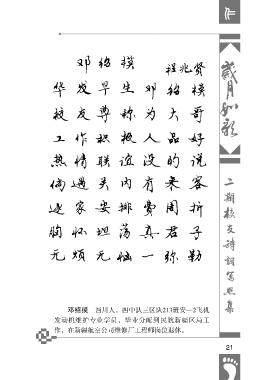 作
岁月如歌
二期校友诗词写照集
邓绍模 程兆贤
华发早生邓绍模
校友尊称为大哥
工作积极人品好
热情联谊没的说
偶遇关内有来客
逐家安排费周折
胸怀坦荡真君子
元烦元恼一弥勒
邓绍模 四川人，四中队三区队213班安—2飞机
发动机维护专业学员，毕业分配到民航新疆区局工
作，在新疆航空公司维修厂工程师岗位退休。
21